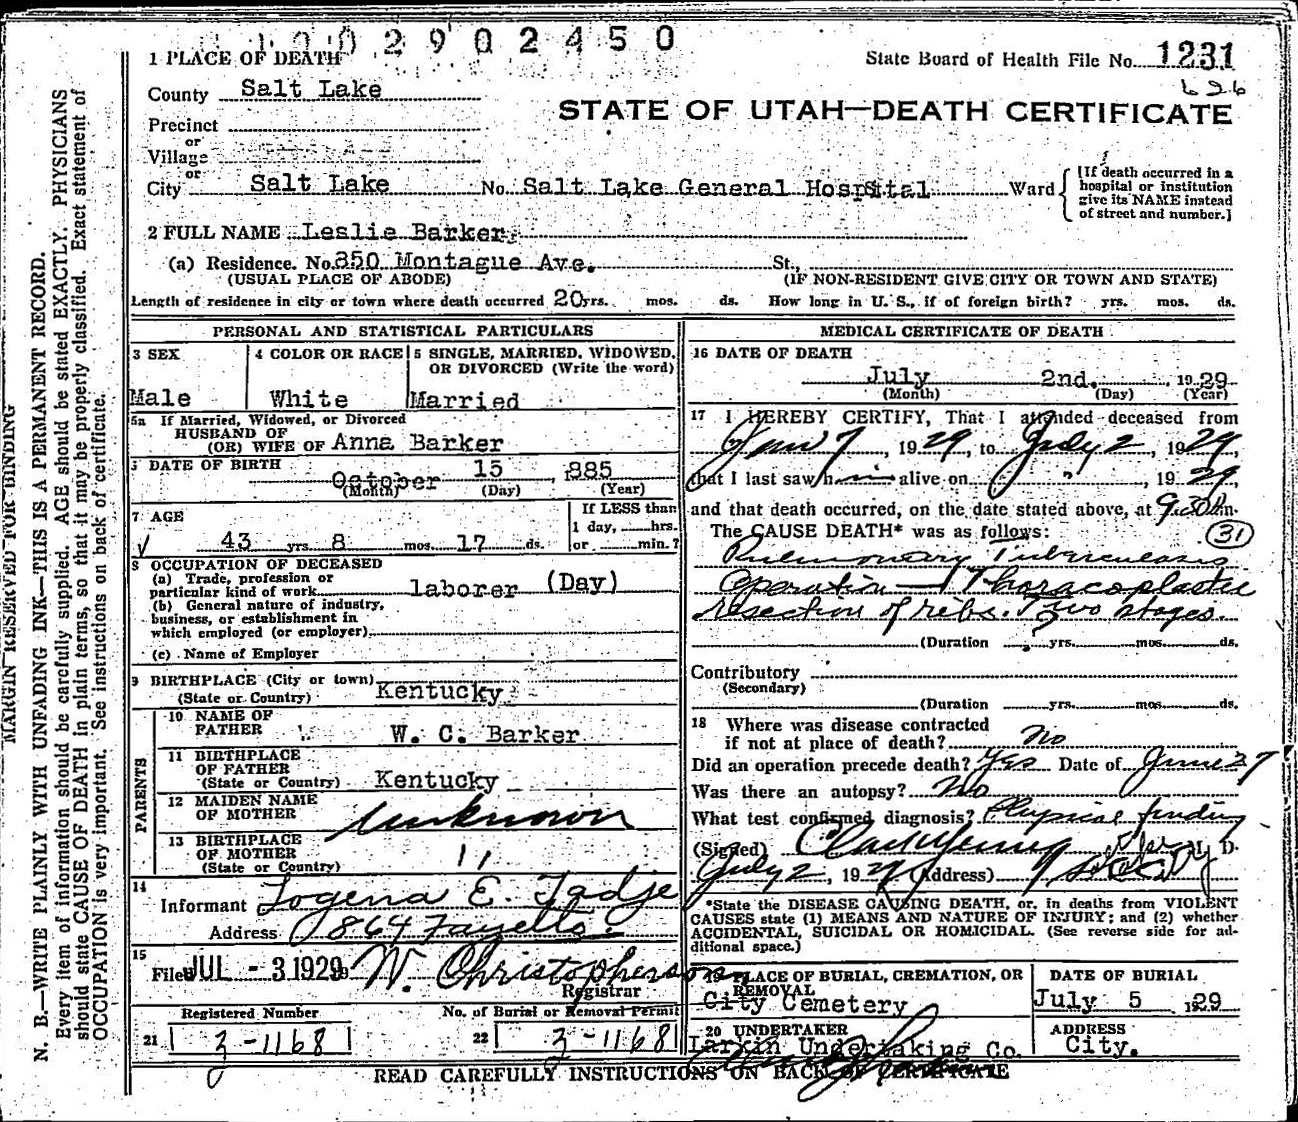 1002902450
1 PLACE OF DEATH
State Board of Health File No. 1231
626
County Salt Lake
STATE OF UTAH—DEATH CERTIFICATE
Precinct
or
Village
or
City Salt Lake No. Salt Lake General Hospital Ward
[If death occurred in a
hospital or institution
give its NAME instead
of street and number.]
2 FULL NAME Leslie Barker.
(a) Residence. No. 350 Montague Ave. St.,
(USUAL PLACE OF ABODE) (IF NON-RESIDENT GIVE CITY OR TOWN AND STATE)
Length of residence in city or town where death occurred 20 yrs. mos. ds. How long in U. S., if of foreign birth? yrs. mos. ds.
PERSONAL AND STATISTICAL PARTICULARS
3 SEX
Male
4 COLOR OR RACE
White
5 SINGLE, MARRIED, WIDOWED,
OR DIVORCED (Write the word)
Married
5a If Married, Widowed, or Divorced
HUSBAND OF
(OR) WIFE OF Anna Barker
DATE OF BIRTH
October 15, 885
(Month) (Day) (Year)
7 AGE
43 yrs. 8 mos. 17 ds.
If LESS than
1 day, hrs.
or min.?
8 OCCUPATION OF DECEASED
(a) Trade, profession or
particular kind of work laborer (Day)
(b) General nature of industry,
business, or establishment in
which employed (or employer)
(c) Name of Employer
9 BIRTHPLACE (City or town)
(State or Country) Kentucky
PARENTS
10 NAME OF
FATHER W. C. Barker
11 BIRTHPLACE
OF FATHER
(State or Country) Kentucky
12 MAIDEN NAME
OF MOTHER unknown
13 BIRTHPLACE
OF MOTHER
(State or Country) "
14
Informant Logena E. Tadje
Address 864 Fayette.
15
Filed JUL - 3 1929 W. Christopherson
Registrar
Registered Number
21 3-1168
No. of Burial or Removal Permit
22 3-1168
MEDICAL CERTIFICATE OF DEATH
16 DATE OF DEATH
July 2nd. 1929
(Month) (Day) (Year)
17 I HEREBY CERTIFY, That I attended deceased from
June 7, 1929, to July 2, 1929,
that I last saw him alive on ", 1929,
and that death occurred, on the date stated above, at 9:30 Am.
The CAUSE DEATH* was as follows: 31
Pulmonary Tuberculosis
Operation — Thoracoplastic
resection of ribs. Two stages.
(Duration yrs. mos. ds.
Contributory
(Secondary)
(Duration yrs. mos. ds.
18 Where was disease contracted
if not at place of death? No
Did an operation precede death? Yes Date of June 27
Was there an autopsy? No
What test confirmed diagnosis? Physical finding
(Signed) M. D.
July 2, 1929 (Address)
*State the DISEASE CAUSING DEATH, or, in deaths from VIOLENT
CAUSES state (1) MEANS AND NATURE OF INJURY; and (2) whether
ACCIDENTAL, SUICIDAL OR HOMICIDAL. (See reverse side for ad-
ditional space.)
19 PLACE OF BURIAL, CREMATION, OR
REMOVAL
City Cemetery
DATE OF BURIAL
July 5 1929
20 UNDERTAKER
Larkin Undertaking Co.
ADDRESS
City.
READ CAREFULLY INSTRUCTIONS ON BACK OF CERTIFICATE
MARGIN RESERVED FOR BINDING
N. B.—WRITE PLAINLY WITH UNFADING INK—THIS IS A PERMANENT RECORD.
Every item of information should be carefully supplied. AGE should be stated EXACTLY. PHYSICIANS
should state CAUSE OF DEATH in plain terms, so that it may be properly classified. Exact statement of
OCCUPATION is very important. See instructions on back of certificate.